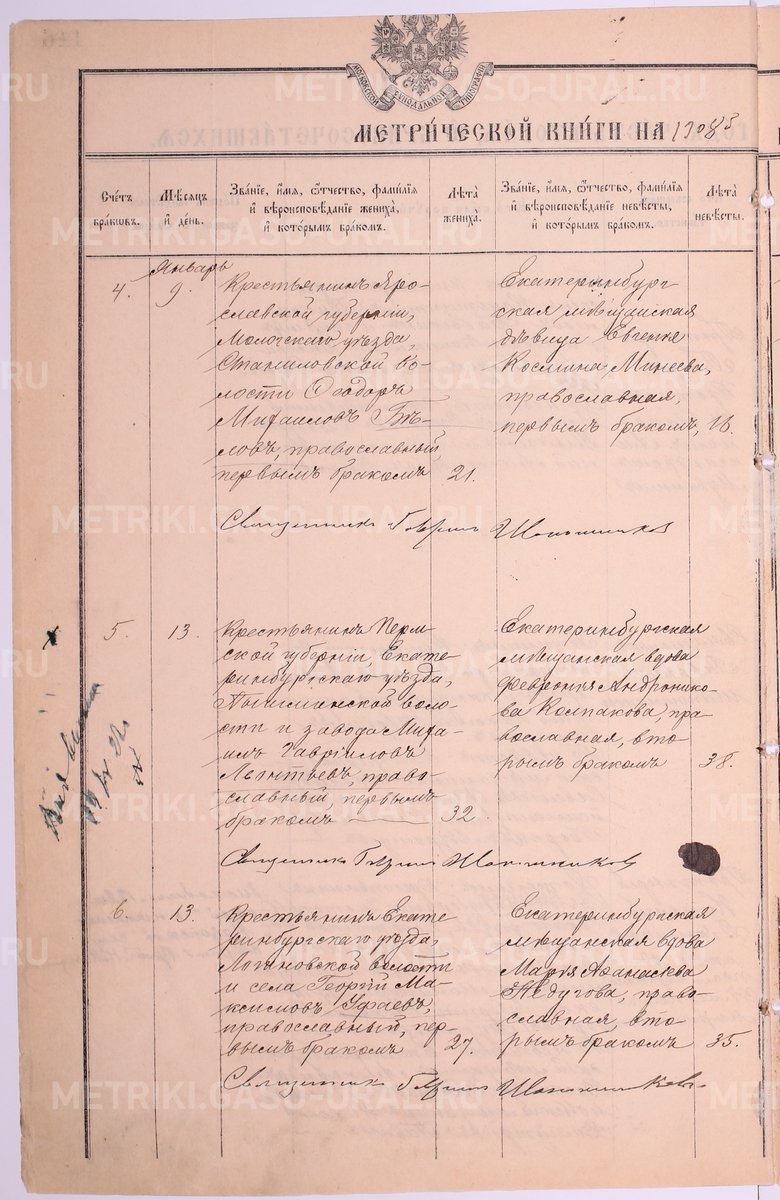 МОСКОВСКОЙ СѴНОДАЛЬНОЙ ТИПОГРАФІИ
МЕТРИ́ЧЕСКОЙ КНИ́ГИ НА
Сче́тъ бра́ковъ.
Мѣ́сяцъ и҆ де́нь.
Зва́нїе, и҆́мя, ѻ҆́тчество, фамї́лїя и҆ вѣроисповѣ́данїе жениха̀, и҆ кото́рымъ бра́комъ.
Лѣ́та жениха̀.
Зва́нїе, и҆́мя, ѻ҆́тчество, фамї́лїя и҆ вѣроисповѣ́данїе невѣ́сты, и҆ кото́рымъ бра́комъ.
Лѣ́та невѣ́сты.
Январь
4.
9.
Крестьянинъ Яро-
славской губерніи,
Мологскаго уѣзда,
Станиловской во-
лости Ѳеодоръ
Михаиловъ Бѣ-
ловъ, православный,
первымъ бракомъ
21.
Екатеринбург-
ская мѣщанская
дѣвица Евгенія
Космина Минеева,
православная,
первымъ бракомъ,
18.
Священникъ Гавріилъ
5.
13.
Крестьянинъ Перм-
ской губерніи, Екате-
ринбургскаго уѣзда,
Пышминской воло-
сти и завода Миха-
илъ Гавріиловъ
Леонтьевъ, право-
славный, первымъ
бракомъ
32.
Екатеринбургская
мѣщанская вдова
Февронія Андронико-
ва Колпакова, пра-
вославная, вто-
рымъ бракомъ
38.
Священникъ Гавріилъ
6.
13.
Крестьянинъ Екате
ринбургскаго уѣзда,
Логиновской волости
и села Георгій Ма-
ксимовъ Уфаевъ,
православный, пер-
вымъ бракомъ
27.
Екатеринбургская
мѣщанская вдова
Марія Аѳанасіева
Недугова, право-
славная, вто-
рымъ бракомъ
35.
Священникъ Гавріилъ
METRIKI.GASO-URAL.RU